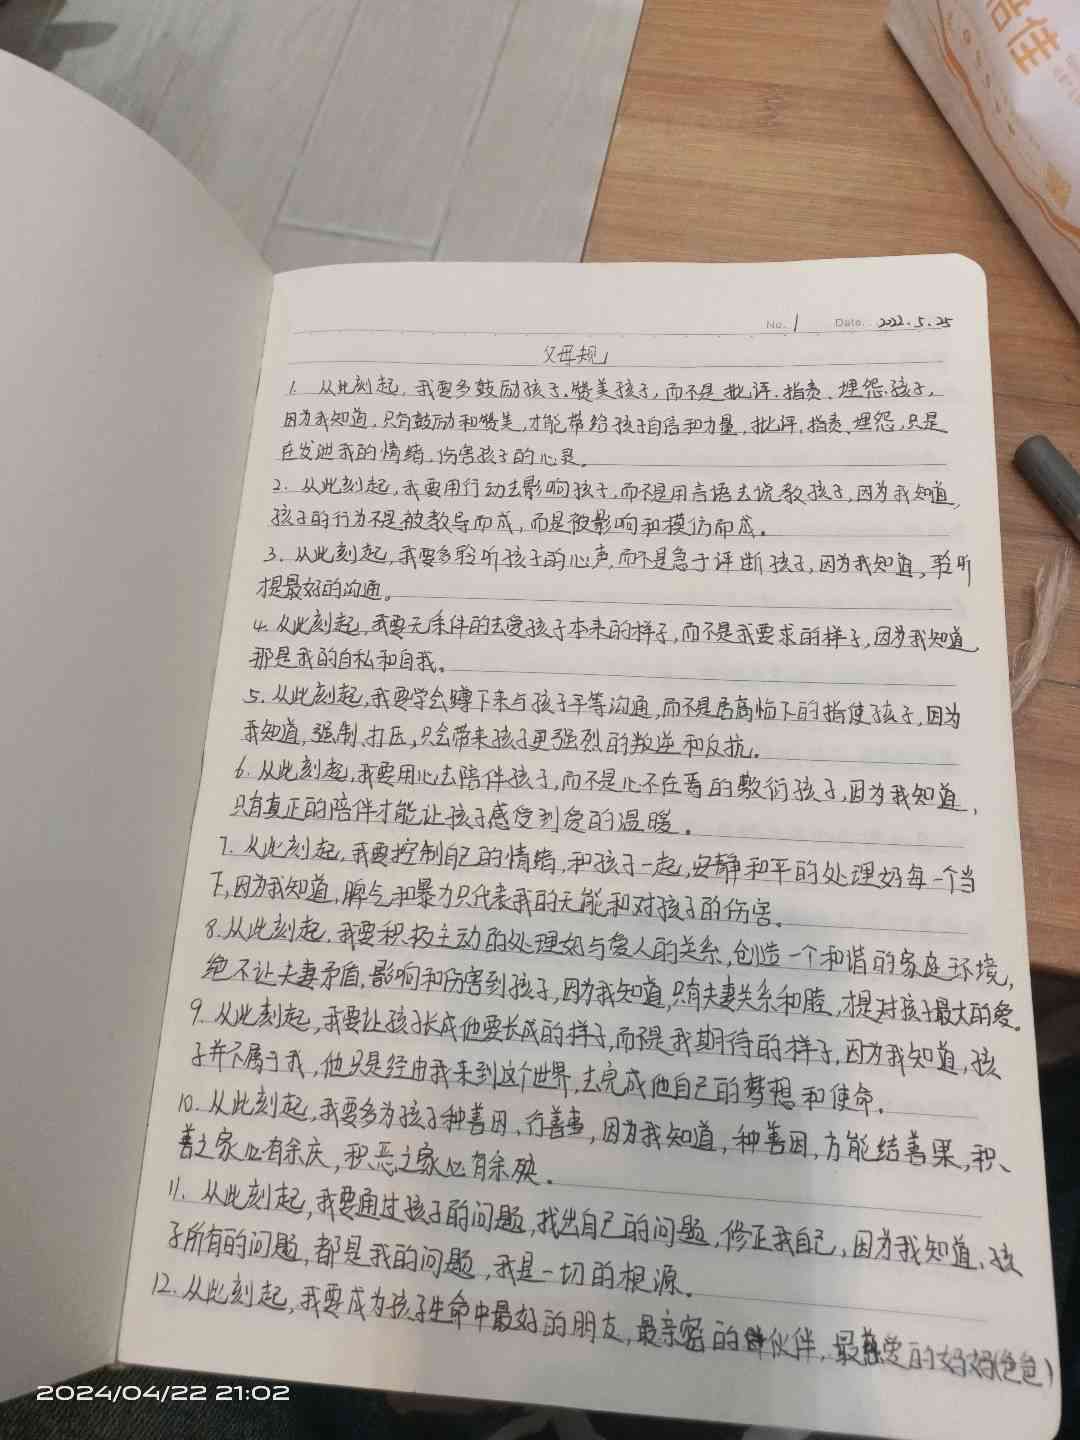 佳
No. 1 Date. 2022.5.25
父母规
1. 从此刻起,我要多鼓励孩子、赞美孩子,而不是批评、指责、埋怨孩子,
因为我知道,只有鼓励和赞美,才能带给孩子自信和力量,批评、指责、埋怨,只是
在发泄我的情绪、伤害孩子的心灵。
2. 从此刻起,我要用行动去影响孩子,而不是用言语去说教孩子,因为我知道,
孩子的行为不是被教导而成,而是被影响和模仿而成。
3. 从此刻起,我要多聆听孩子的心声,而不是急于评断孩子,因为我知道,聆听
才是最好的沟通。
4. 从此刻起,我要无条件的去爱孩子本来的样子,而不是我要求的样子,因为我知道,
那是我的自私和自我。
5. 从此刻起,我要学会蹲下来与孩子平等沟通,而不是居高临下的指使孩子,因为
我知道,强制、打压,只会带来孩子更强烈的叛逆和反抗。
6. 从此刻起,我要用心去陪伴孩子,而不是心不在焉的敷衍孩子,因为我知道,
只有真正的陪伴才能让孩子感受到爱的温暖。
7. 从此刻起,我要控制自己的情绪,和孩子一起,安静和平的处理好每一个当
下,因为我知道,脾气和暴力只代表我的无能和对孩子的伤害。
8. 从此刻起,我要积极主动的处理好与爱人的关系,创造一个和谐的家庭环境,
绝不让夫妻矛盾,影响和伤害到孩子,因为我知道,只有夫妻关系和睦,才是对孩子最大的爱。
9. 从此刻起,我要让孩子长成他要长成的样子,而不是我期待的样子,因为我知道,孩
子并不属于我,他只是经由我来到这个世界,去完成他自己的梦想和使命。
10. 从此刻起,我要多为孩子种善因、行善事,因为我知道,种善因,方能结善果,积
善之家必有余庆,积恶之家必有余殃。
11. 从此刻起,我要通过孩子的问题,找出自己的问题,修正我自己,因为我知道,孩
子所有的问题,都是我的问题,我是一切的根源。
12. 从此刻起,我要成为孩子生命中最好的朋友,最亲密的伙伴,最慈爱的妈妈(爸爸)
2024/04/22 21:02